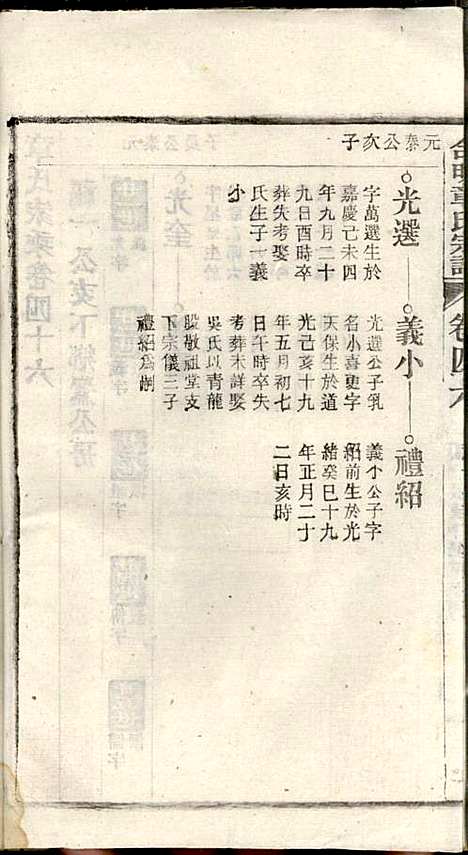 元泰公次子
光選
字萬選生於
嘉慶己未四
年九月二十
九日酉時卒
葬失考娶
氏生子一義
小
義小
光選公子乳
名小喜更字
天保生於道
光己亥十九
年五月初七
日午時卒失
考葬未詳娶
吳氏以青龍
股敬祖堂支
下宗儀三子
禮紹為嗣
禮紹
義小公子字
紹前生於光
緒癸巳十九
年正月二十
二日亥時
章氏宗譜
卷四十六